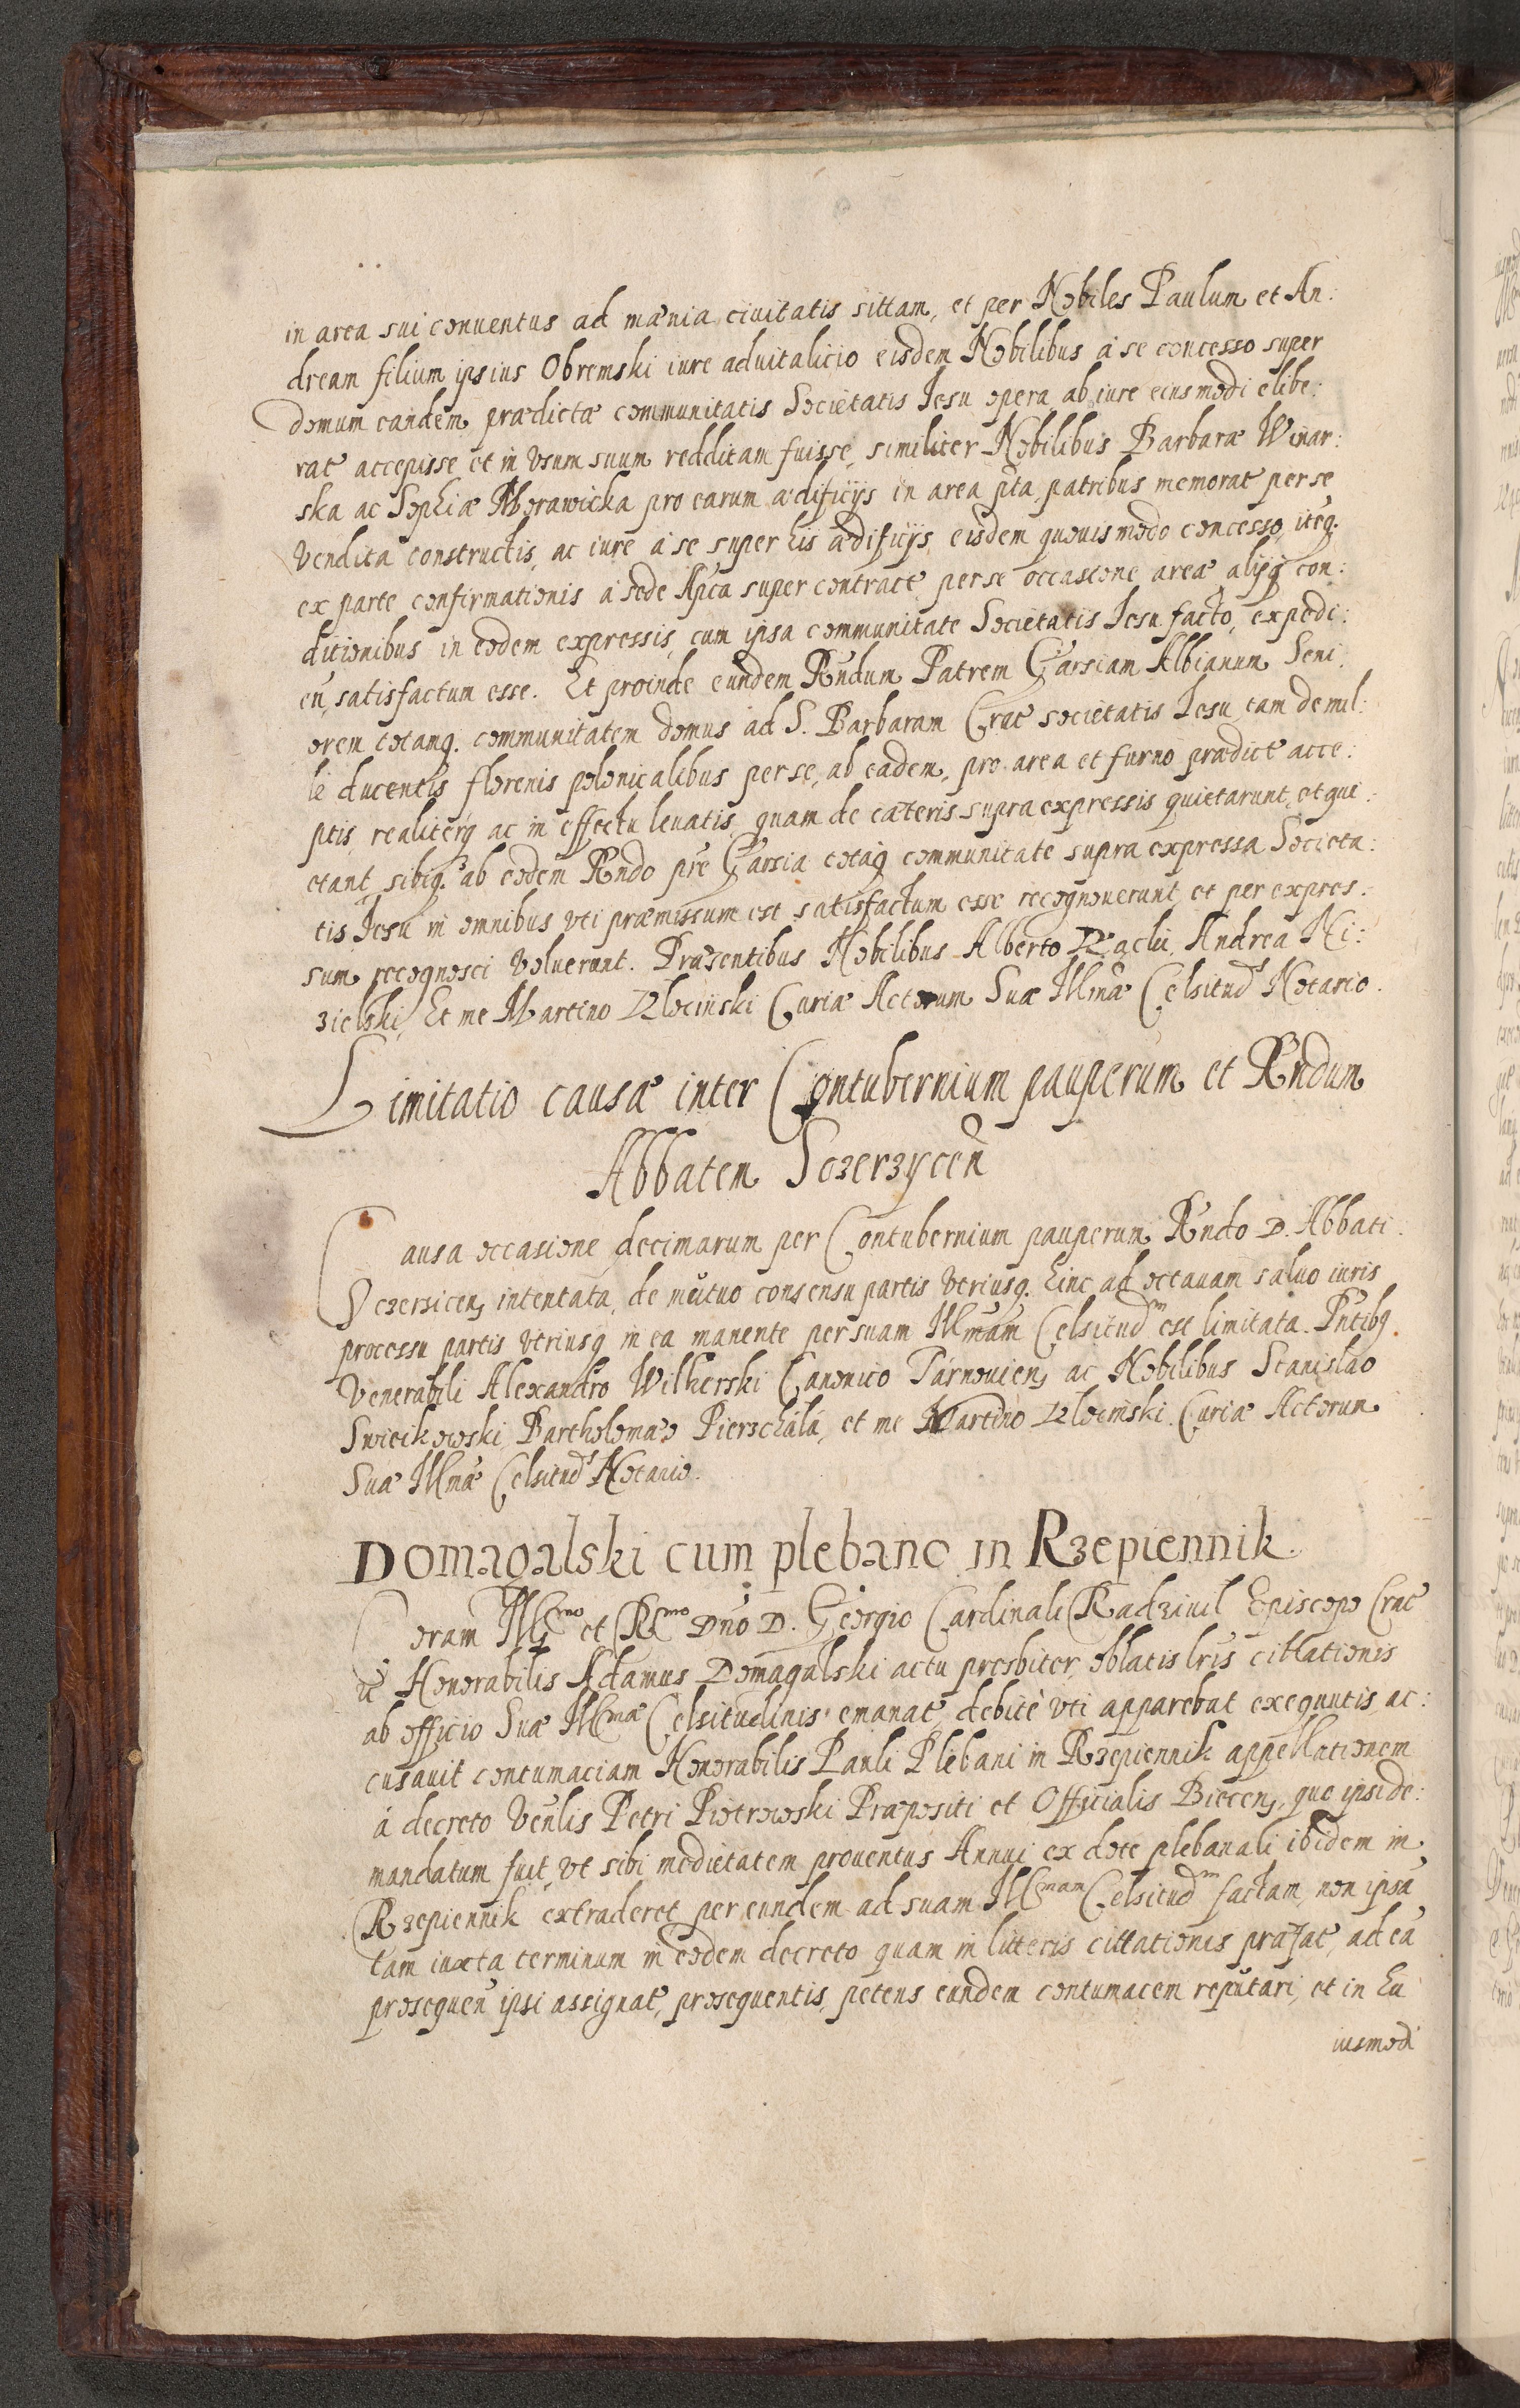 in area sui conuentus ad mænia ciuitatis sittam, et per Nobiles Paulum et An:
dream filium ipsius Obremski iure aduitalicio eisdem Nobilibus à se concesso super
domum eandem prædictæ communitatis Societatis Iesu opera ab iure eiusmodi elibe:
rat̃ accepisse et in vsum suum redditam fuisse, similiter Nobilibus Barbaræ Winar:
ska ac Sophiæ Morawicka pro earum ædificijs in area p̃ta patribus memorat̃ per se
vendita constructis, ac iure à se super his ædificijs eisdem quouis modo concesso, itẽq.
ex parte confirmationis à sede Ap̃ca super contract̃ per se occasione areæ alijsq. con:
ditionibus in eodem expressis, cum ipsa communitate Societatis Iesu facto, expedi:
eñ, satisfactum esse. Et proinde eundem Rñdum Patrem Garsiam Albianum Seni:
orem totamq. communitatem domus ad S. Barbaram Crac̃ societatis Iesu, tam de mil:
le ducentis florenis polonicalibus per se, ab eadem, pro area et furno prædict̃ acce:
ptis, realiterq. ac in effectu leuatis, quam de cæteris supra expressis quietarunt, et qui:
etant, sibiq. ab eodem Rñdo prẽ Garsia totaq. communitate supra expressa Societa:
tis Iesu in omnibus vti præmissum est satisfactum esse recognouerunt, et per expres:
sum recognosci voluerunt. Præsentibus Nobilibus Alberto Andrea Ni:
zielski, Et me Martino Zlocinski Curiæ Actorum Suæ Illm̃æ Celsitud̃s Notario.
Limitatio causæ inter Contubernium pauperum et Rñdum
Abbatem Sczerzyceñ
Causa occasione decimarum per Contubernium pauperum Rñdo D. Abbati
Sczerzicens̃ intentata, de mutuo consensu partis vtriusq. hinc ad octauam saluo iuris
processu partis vtriusq. in ea manente per suam Illm̃am Celsitud̃m est limitata. Pñtibq.
Venerabili Alexandro Wilkerski Canonico Tarnouiens̃ ac Nobilibus Stanislao
Swieikowski, Bartholomæo Pierzchała, et me Martino Zlocinski Curiæ Actorum
Suæ Illm̃æ Celsitud̃s Notario.
Domagalski cum plebano in Rzepiennik.
Coram Illmo et Rmo Dño D. Georgio Cardinali Radziuil Episcopo Crac̃
ii Honorabilis Adamus Domagalski actu presbiter, oblatis lr̃is cittationis
ab officio Suæ Illmæ Celsitudinis emanat̃, debitè vti apparebat exequutis, ac:
cusauit contumaciam Honorabilis Pauli Plebani in Rzepiennik appellationem
à decreto Veñlis Petri Piotrowski Præpositi et Officialis Biecens̃, quo ipsi de:
mandatum fuit, vt sibi medietatem prouentus Annui ex dote plebanali ibidem in
Rzepiennik extraderet, per eundem ad suam Illmam Celsitud̃m factam, non ipsã
tam iuxta terminum in eodem decreto quam in litteris cittationis præfat̃, ad eã
prosequeñ ipsi assignat̃, prosequentis, petens eundem contumacem reputari, et in hu
iusmodi